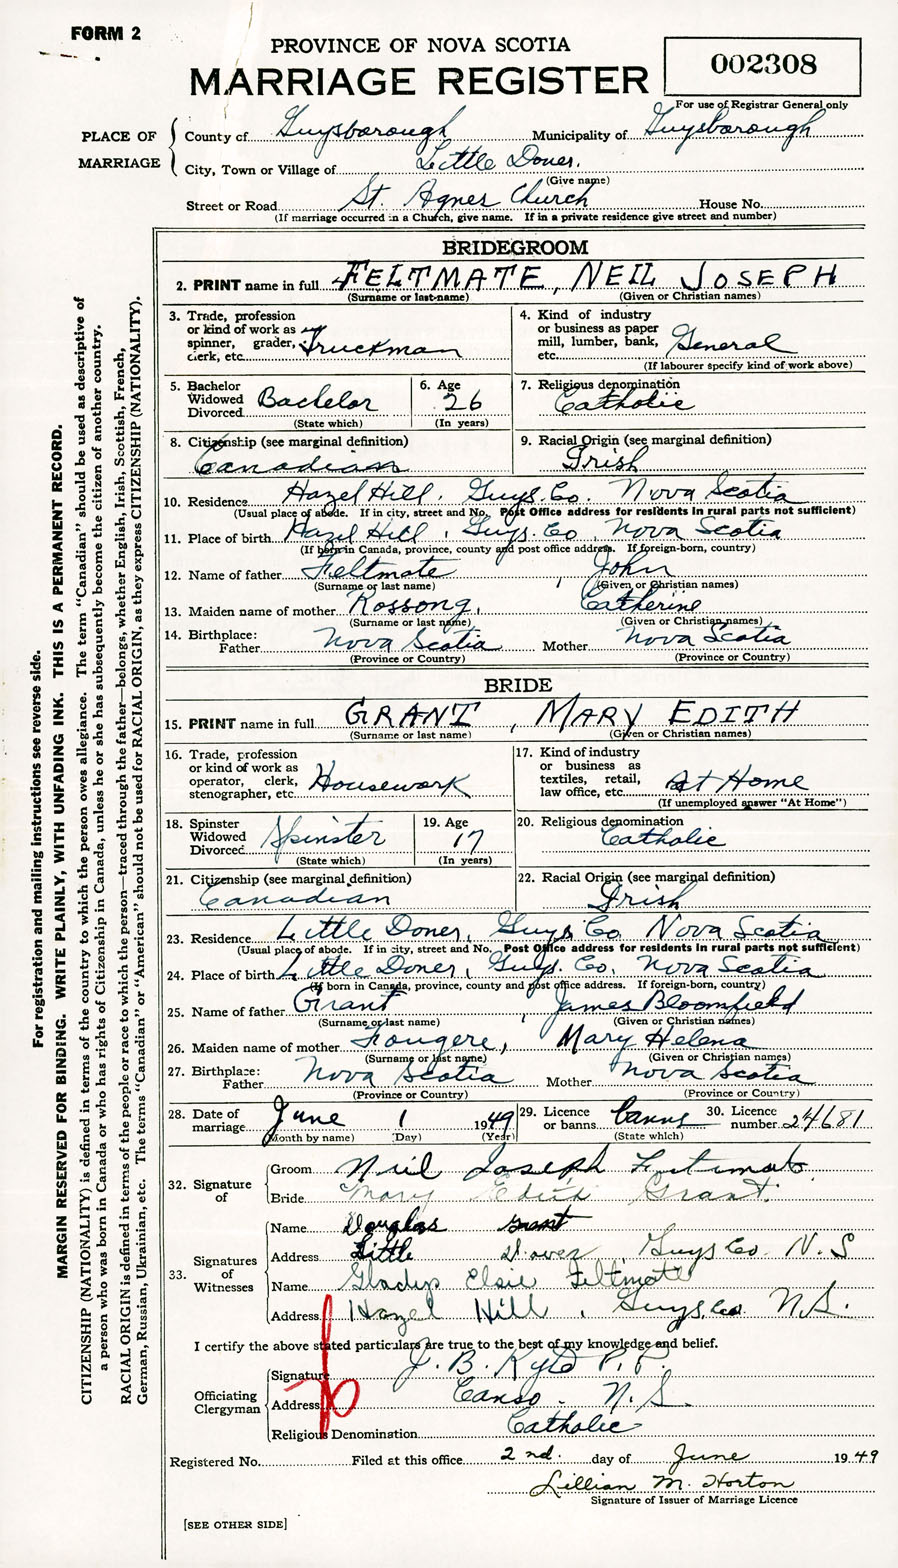 FORM 2
PROVINCE OF NOVA SCOTIA
MARRIAGE REGISTER
002308
For use of Registrar General only
PLACE OF MARRIAGE
County of Guysborough Municipality of Guysborough
City, Town or Village of Little Dover.
(Give name)
Street or Road St. Agnes Church House No.
(If marriage occurred in a Church, give name. If in a private residence give street and number)
BRIDEGROOM
2. PRINT name in full FELTMATE, NEIL JOSEPH
(Surname or last-name) (Given or Christian names)
3. Trade, profession or kind of work as spinner, grader, clerk, etc. Truckman
4. Kind of industry or business as paper mill, lumber, bank, etc. General
(If labourer specify kind of work above)
5. Bachelor Widowed Divorced Bachelor
(State which)
6. Age 26
(In years)
7. Religious denomination
Catholic
8. Citizenship (see marginal definition)
Canadian
9. Racial Origin (see marginal definition)
Irish
10. Residence Hazel Hill, Guys. Co. Nova Scotia
(Usual place of abode. If in city, street and No. Post Office address for residents in rural parts not sufficient)
11. Place of birth Hazel Hill, Guys. Co., Nova Scotia
(If born in Canada, province, county and post office address. If foreign-born, country)
12. Name of father Feltmate, John
(Surname or last name) (Given or Christian names)
13. Maiden name of mother Rossong, Catherine
(Surname or last name) (Given or Christian names)
14. Birthplace: Father Nova Scotia Mother Nova Scotia
(Province or Country) (Province or Country)
BRIDE
15. PRINT name in full GRANT, MARY EDITH
(Surname or last name) (Given or Christian names)
16. Trade, profession or kind of work as operator, clerk, stenographer, etc. Housework
17. Kind of industry or business as textiles, retail, law office, etc. At Home
(If unemployed answer "At Home")
18. Spinster Widowed Divorced Spinster
(State which)
19. Age 17
(In years)
20. Religious denomination
Catholic
21. Citizenship (see marginal definition)
Canadian
22. Racial Origin (see marginal definition)
Irish
23. Residence Little Dover, Guys. Co. Nova Scotia
(Usual place of abode. If in city, street and No. Post Office address for residents in rural parts not sufficient)
24. Place of birth Little Dover, Guys. Co, Nova Scotia
(If born in Canada, province, county and post office address. If foreign-born, country)
25. Name of father Grant, James Bloomfield
(Surname or last name) (Given or Christian names)
26. Maiden name of mother Fougere, Mary Helena
(Surname or last name) (Given or Christian names)
27. Birthplace: Father Nova Scotia Mother Nova Scotia
(Province or Country) (Province or Country)
28. Date of marriage June 1 1949
(Month by name) (Day) (Year)
29. Licence or banns banns
(State which)
30. Licence number 24681
32. Signature of
Groom Neil Joseph Feltmate
Bride Mary Edith Grant.
33. Signatures of Witnesses
Name Douglas Grant
Address Little Dover Guys Co. N.S
Name Gladys Elsie Feltmate
Address Hazel Hill, Guys. Co. N.S.
I certify the above stated particulars are true to the best of my knowledge and belief.
Officiating Clergyman
Signature J. B. Kyte P.P.
Address Canso. N.S.
Religious Denomination Catholic
Registered No. Filed at this office 2nd. day of June 1949
Lillian M. Horton
Signature of Issuer of Marriage Licence
[SEE OTHER SIDE]
For registration and mailing instructions see reverse side.
MARGIN RESERVED FOR BINDING. WRITE PLAINLY, WITH UNFADING INK. THIS IS A PERMANENT RECORD.
CITIZENSHIP (NATIONALITY) is defined in terms of the country to which the person owes allegiance. The term "Canadian" should be used as descriptive of
a person who was born in Canada or who has rights of Citizenship in Canada, unless he or she has subsequently become the citizen of another country.
RACIAL ORIGIN is defined in terms of the people or race to which the person—traced through the father—belongs, whether English, Irish, Scottish, French,
German, Russian, Ukrainian, etc. The terms "Canadian" or "American" should not be used for RACIAL ORIGIN, as they express CITIZENSHIP (NATIONALITY).